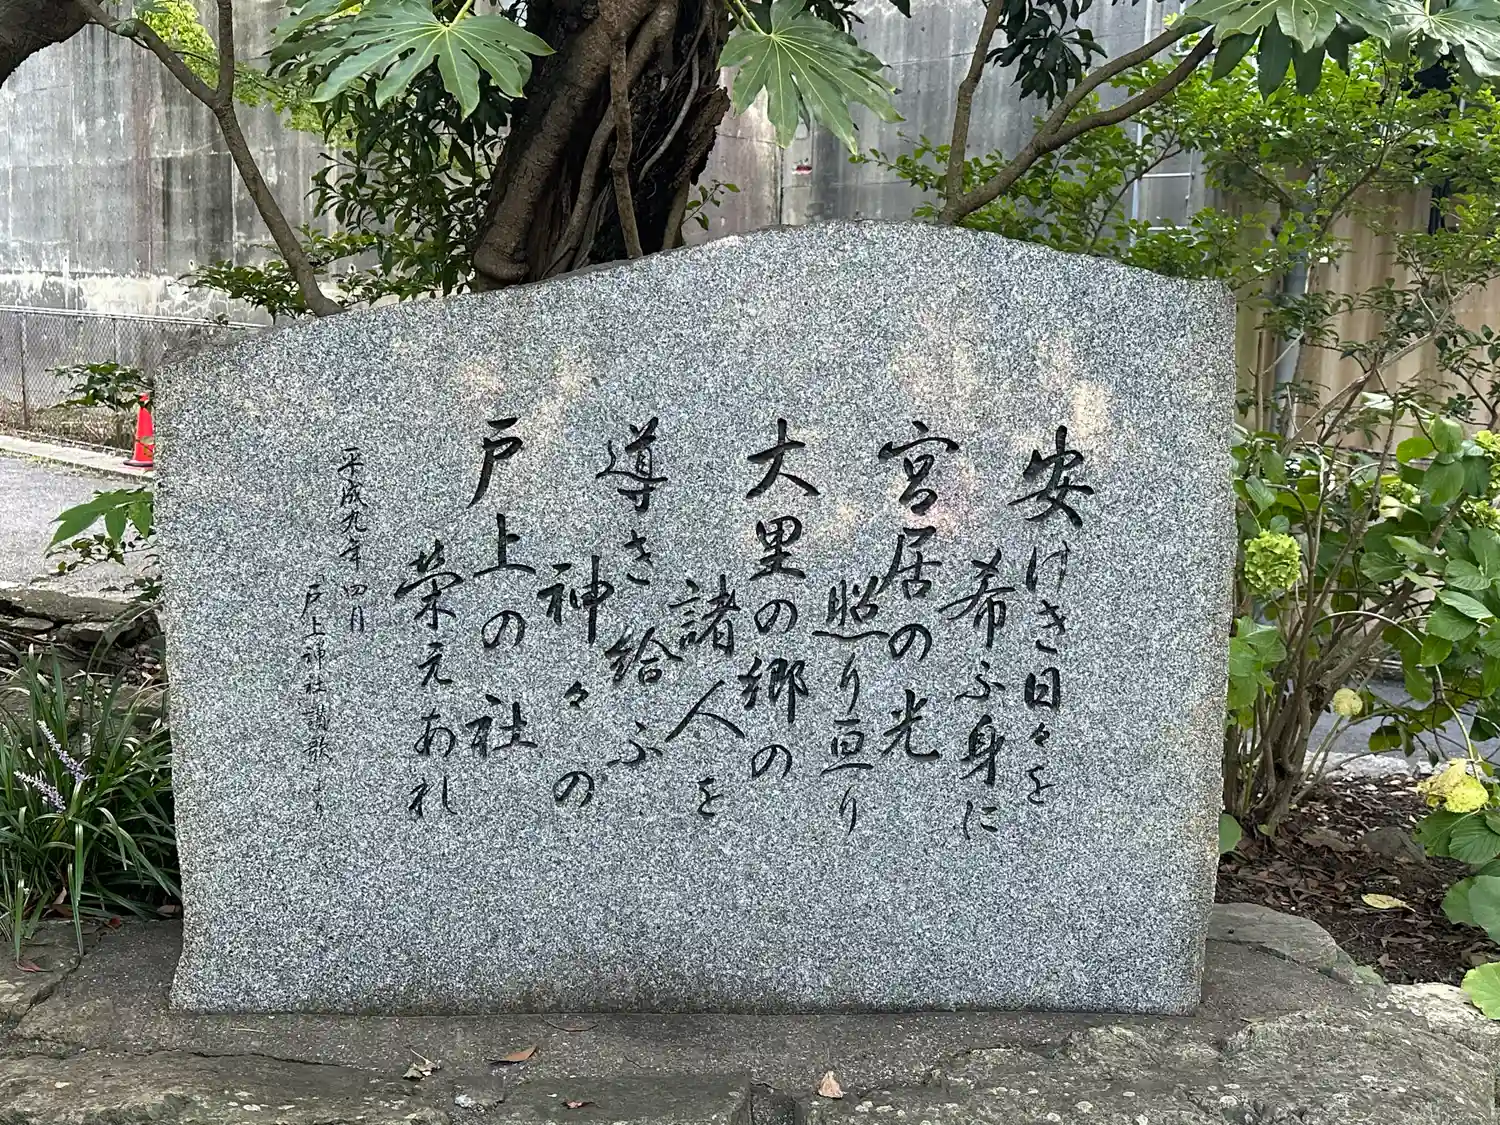 安けき日々を
希ふ身に
宮居の光
照り亘り
大里の郷の
諸人を
導き給ふ
神々の
戸上の社
栄えあれ
平成九年四月
戸上神社讃歌より